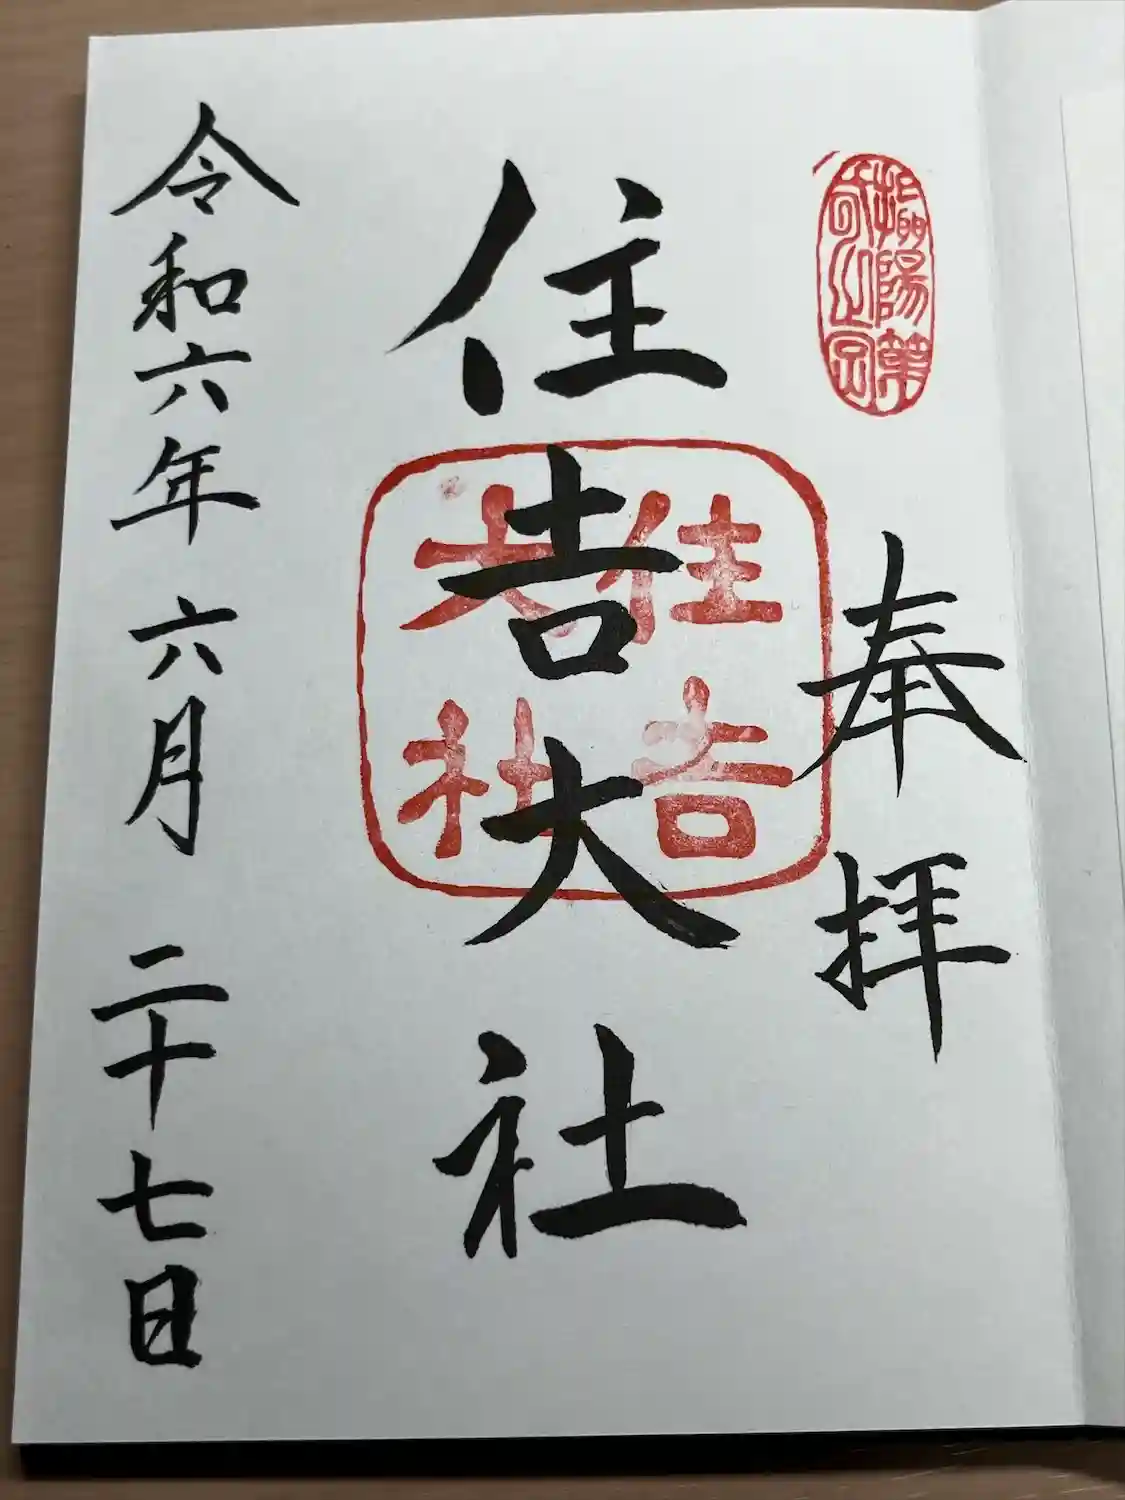 奉拝
住吉大社
住吉
大社
令和六年 六月 二十七日